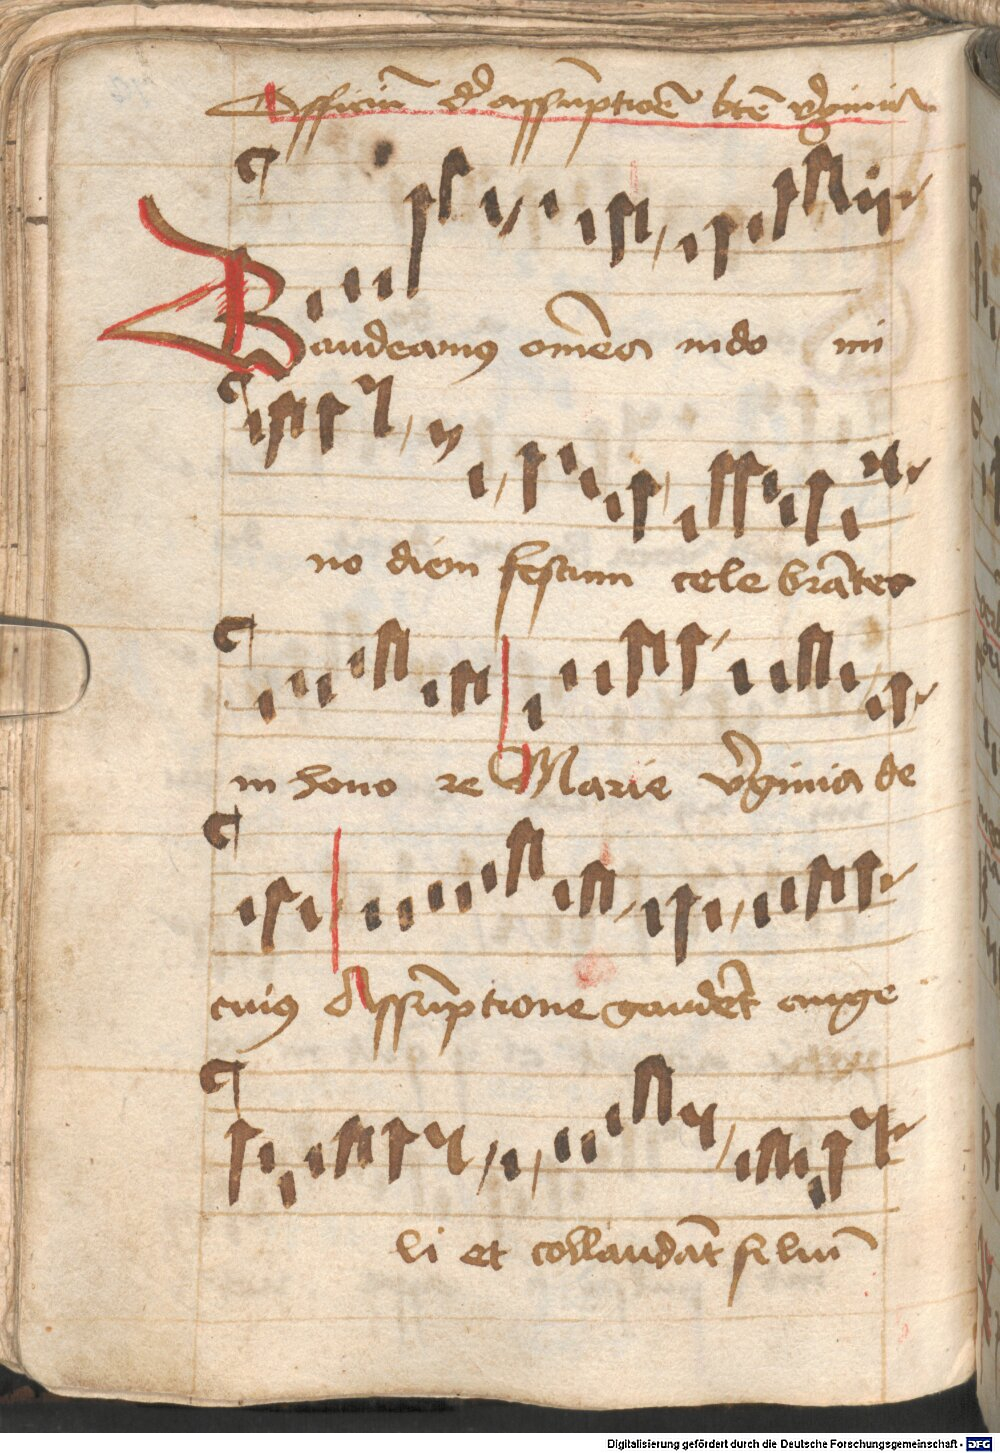 Officiū de assūptiōe btē v̓ginis
Gaudeamus om̄es in do mi
no diem festum cele brātes
in hono re Marie v̓ginis de
cuius Assūptione gaudēt ange
li et collaudāt filiū
Digitalisierung gefördert durch die Deutsche Forschungsgemeinschaft - DFG